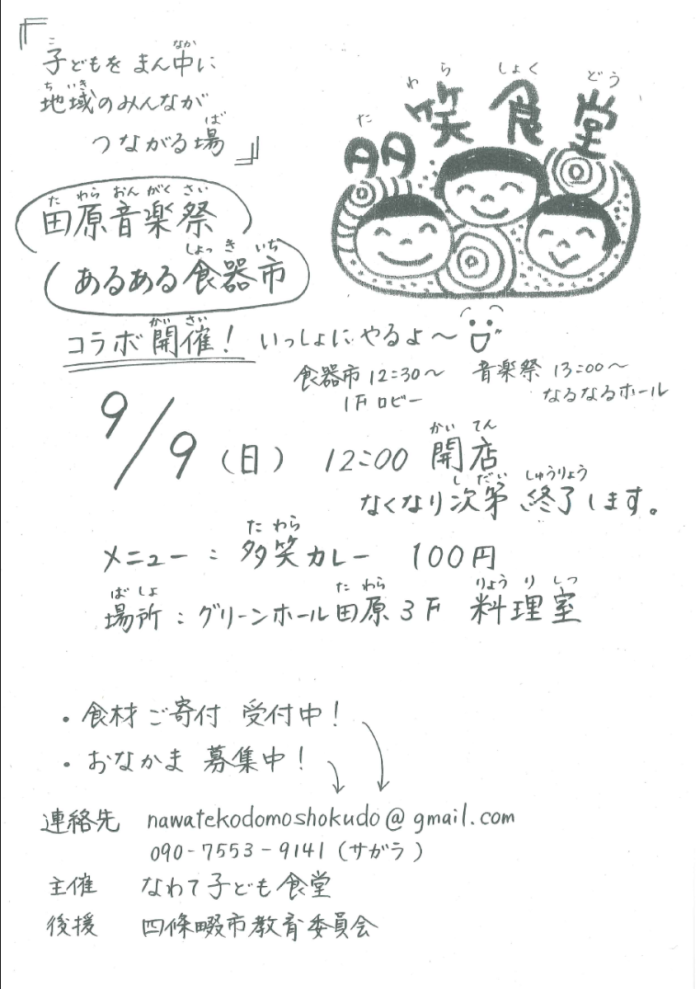 『子どもを まん中に
地域のみんなが
つながる場』
多笑食堂
田原音楽祭
あるある食器市
コラボ開催! いっしょに やるよ～
食器市 12:30～ 音楽祭 13:00～
1F ロビー なるなるホール
9/9 (日) 12:00 開店
なくなり次第 終了します。
メニュー : 多笑カレー 100円
場所 : グリーンホール田原 3F 料理室
・食材ご寄付 受付中!
・おなかま 募集中!
連絡先 nawatekodomoshokudo@gmail.com
090-7553-9141 (サガラ)
主催 なわて子ども食堂
後援 四條畷市教育委員会